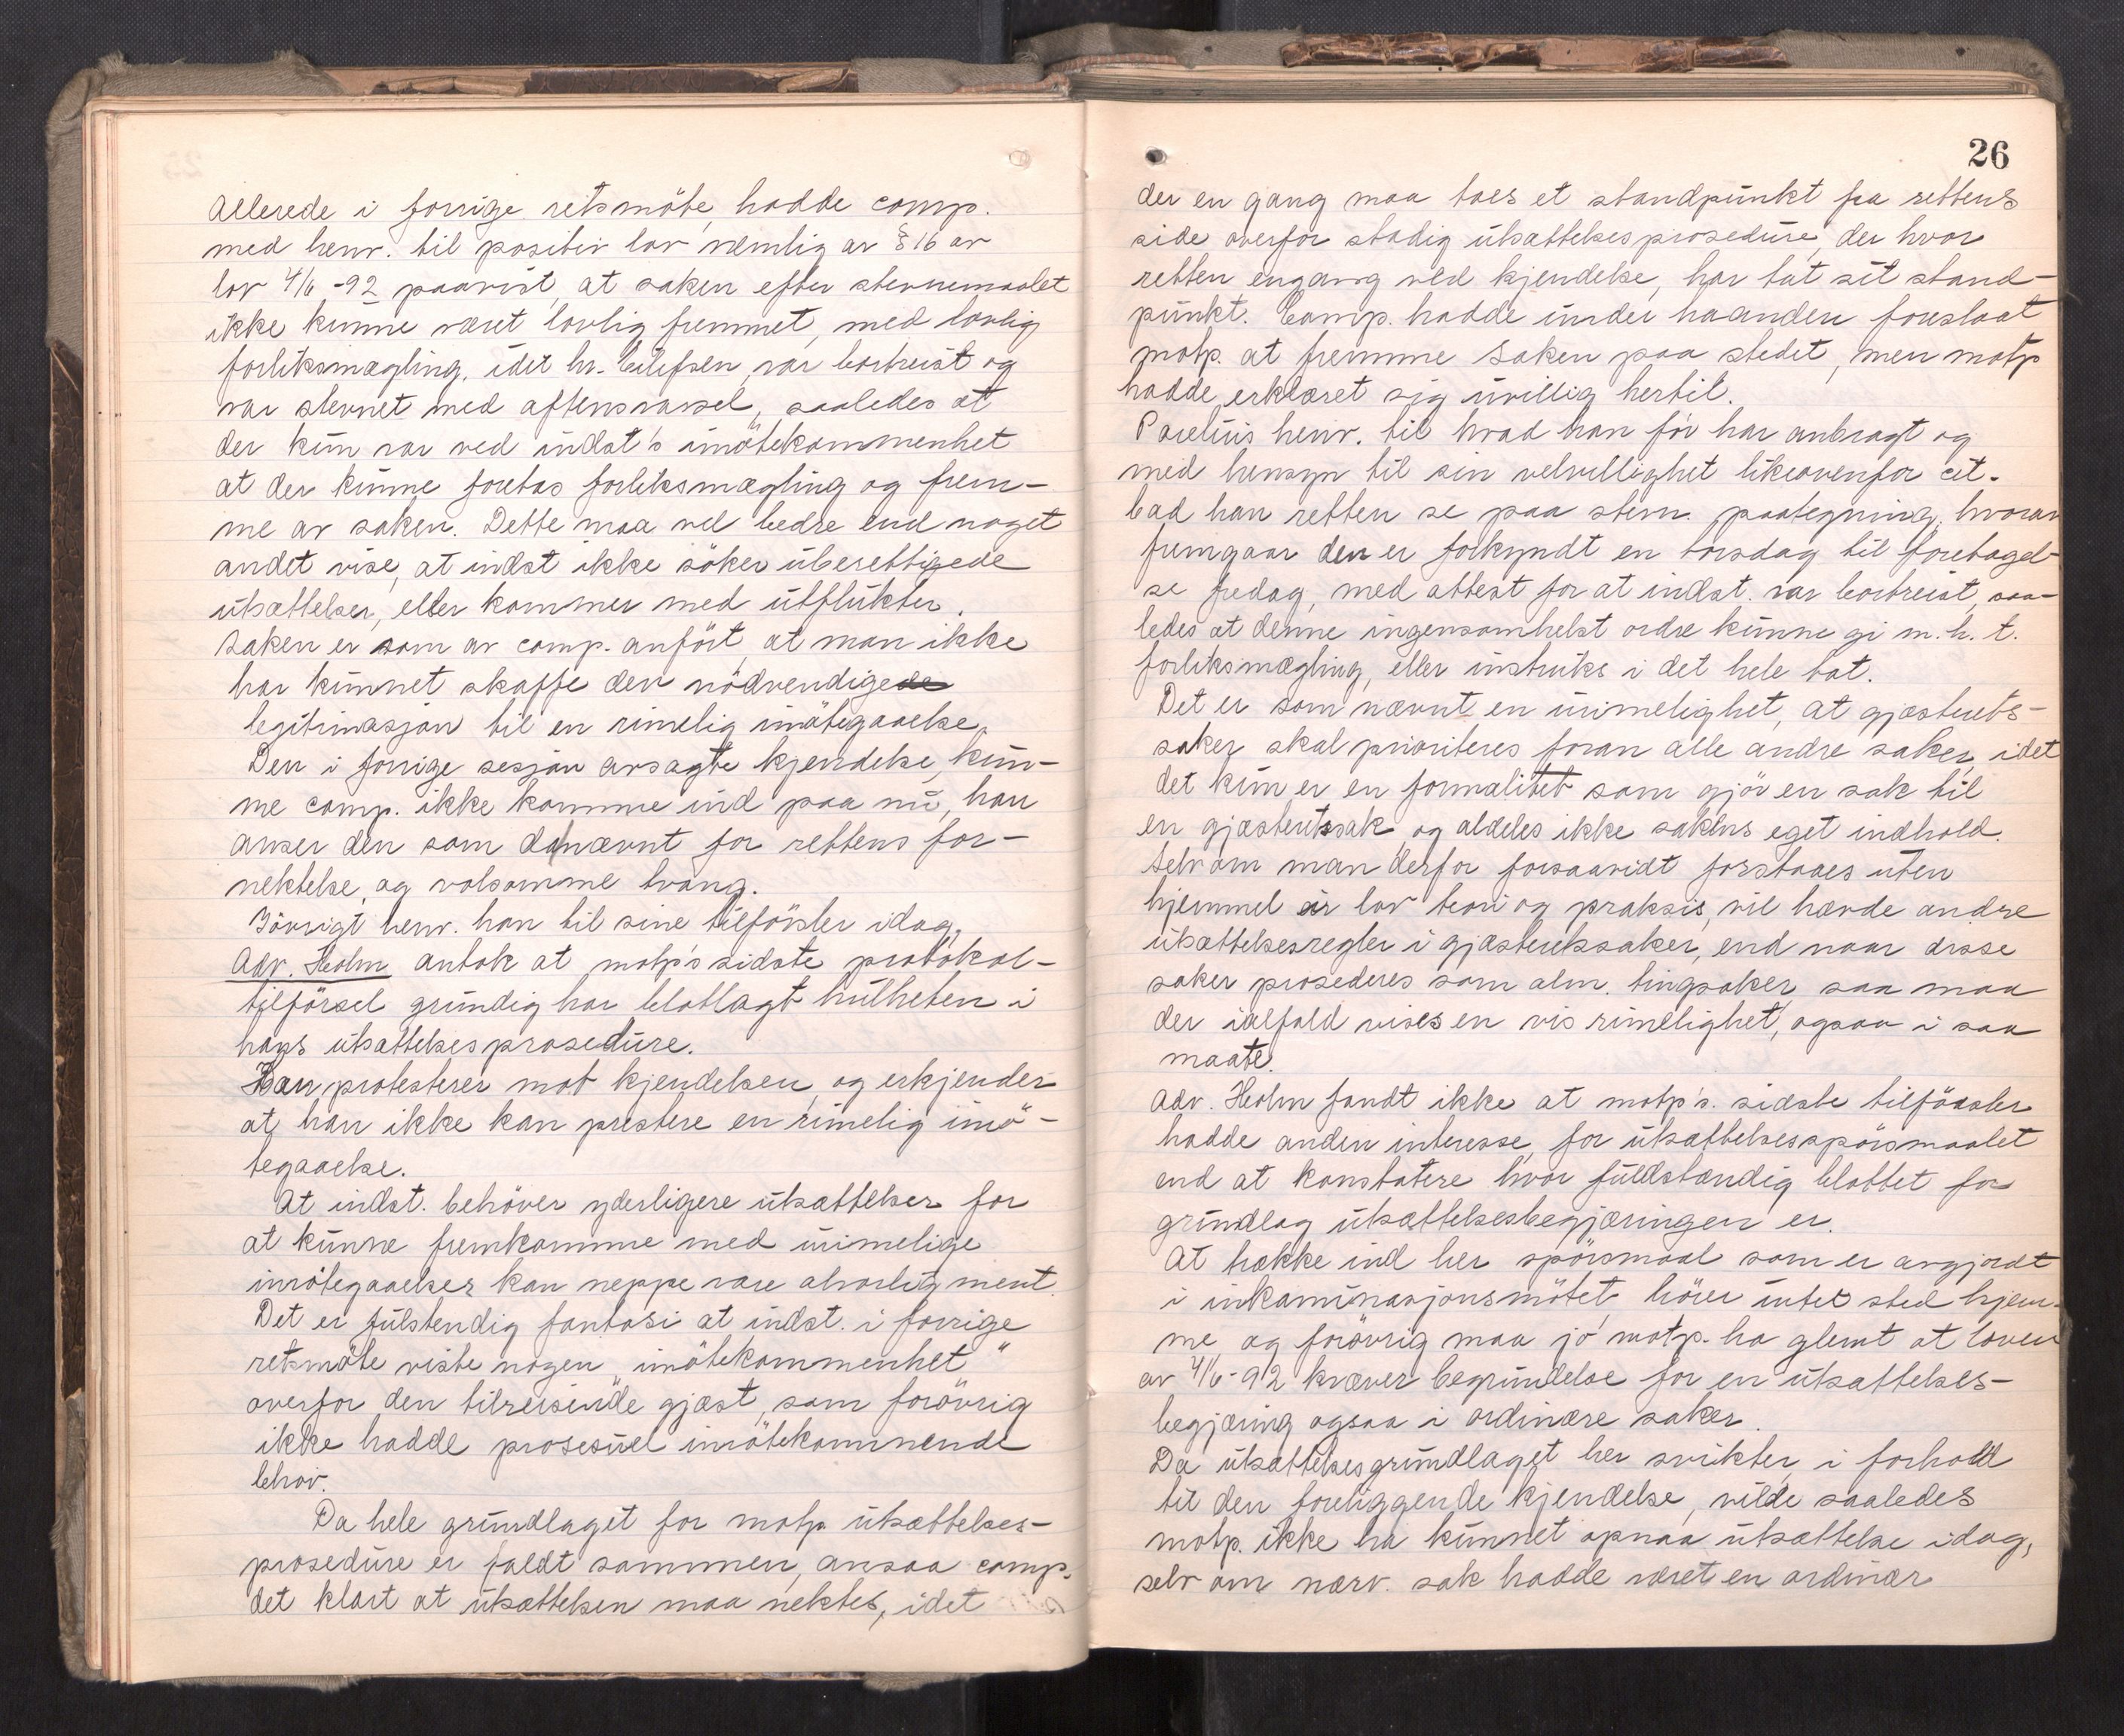 Allerede i forrige retsmöte, hadde comp.
med henv. til positiv lov nemlig av § 16 av
lov 4/6 -92 paavist, at saken efter stevnemaalet
ikke kunne været lovlig fremmet, med lovlig
forliksmægling, idet hr. Eilifsen var bortreist og
var stevnet med aftensvarsel, saaledes at
der kun var ved indst's imötekommenhet
at der kunne foretas forliksmægling og frem-
me av saken. Dette maa vel bedre end noget
andet vise, at indst ikke söker uberettigede
utsættelser, eller kommer med utflukter.
Saken er som av comp. anfört, at man ikke
har kunnet skaffe den nödvendige
legitimasjon til en rimelig imötegaaelse.
Den i forrige sesjon avsagte kjendelse, kun-
ne comp. ikke komme ind paa nu, han
anser den som da nævnt for rettens for-
nektelse, og volsomme tvang.
Iövrigt henv. han til sine tilförsler idag.
Adv. Holm antok at motp's sidste protokol-
tilförsel grundig har blotlagt hulheten i
hans utsættelsesprosedure.
Han protesterer mot kjendelsen, og erkjender
at han ikke kan prestere en rimelig imö-
tegaaelse.
At indst. behöver yderligere utsættelser for
at kunne fremkomme med urimelige
imötegaaelser kan neppe være alvorlig ment.
Det er fulstendig fantasi at indst. i forrige
retsmöte viste nogen "imötekommenhet"
overfor den tilreisende gjæst, som forövrig
ikke hadde prosesuel imötekommende
behov.
Da hele grundlaget for motp. utsættelses-
prosedure er faldt sammen, ansaa comp.
det klart at utsættelsen maa nektes, idet
26
der en gang maa toes et standpunkt fra rettens
side overfor stadig utsættelsesprosedure, der hvor
retten engang ved kjendelse, har tat sit stand-
punkt. Comp. hadde under haanden foreslaat
motp. at fremme saken paa stedet, men motp
hadde erklæret sig uvillig hertil.
Parelius henv. til hvad han för har anbragt og
med hensyn til sin velvillighet likeovenfor cit.
bad han retten se paa stevn. paategning, hvorav
fremgaar den er forkyndt en torsdag til foretagel-
se fredag, med attest for at indst. var bortreist, saa-
ledes at denne ingensomhelst ordre kunne gi m.h.t.
forliksmægling, eller instruks i det hele tat.
Det er som nævnt en urimelighet, at gjæsterets-
saker skal prioriteres foran alle andre saker, idet
det kun er en formalitet som gjör en sak til
en gjæsteretssak og aldeles ikke sakens eget indhold.
Selv om man derfor forsaavidt forstaaes uten
hjemmel i lov teori og praksis, vil hævde andre
utsættelsesregler i gjæsteretssaker, end naar disse
saker prosederes som alm. tingsaker, saa maa
der ialfald vises en vis rimelighet, ogsaa i saa
maate.
Adv. Holm fandt ikke at motp's. sidste tilförsler
hadde anden interesse for utsættelsesspörsmaalet
end at konstatere hvor fuldstændig blottet for
grundlag utsættelsesbegjæringen er.
At trække ind her spörsmaal som er avgjordt
i inkaminasjonsmötet hörer intet sted hjem-
me, og forövrig maa jo motp. ha glemt at loven
av 4/6-92 kræver begrundelse for en utsættelses-
begjæring ogsaa i ordinære saker.
Da utsættelsesgrundlaget her svikter, i forhold
til den foreliggende kjendelse, vilde saaledes
motp. ikke ha kunnet opnaa utsættelse idag,
selv om nærv. sak hadde været en ordinær